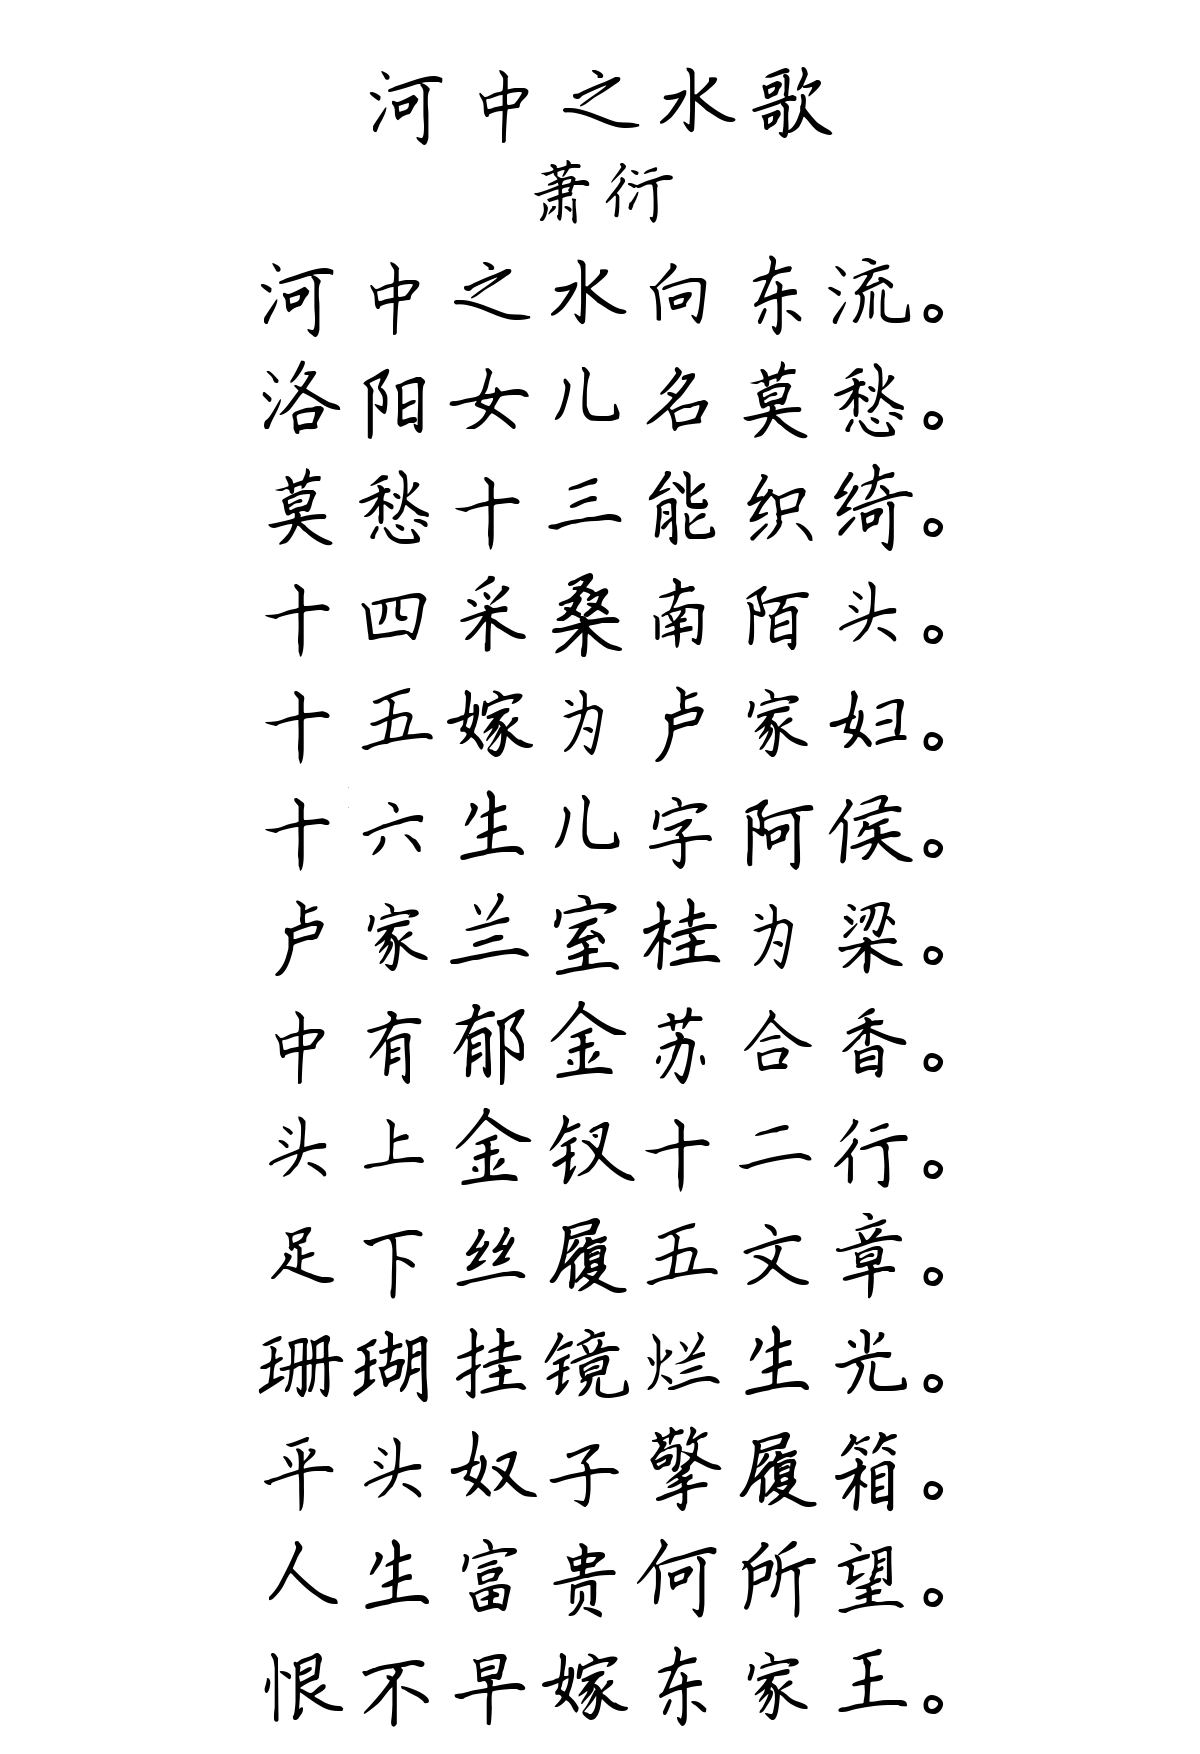 河中之水歌
萧衍
河中之水向东流。
洛阳女儿名莫愁。
莫愁十三能织绮。
十四采桑南陌头。
十五嫁为卢家妇。
十六生儿字阿侯。
卢家兰室桂为梁。
中有郁金苏合香。
头上金钗十二行。
足下丝履五文章。
珊瑚挂镜烂生光。
平头奴子擎履箱。
人生富贵何所望。
恨不早嫁东家王。